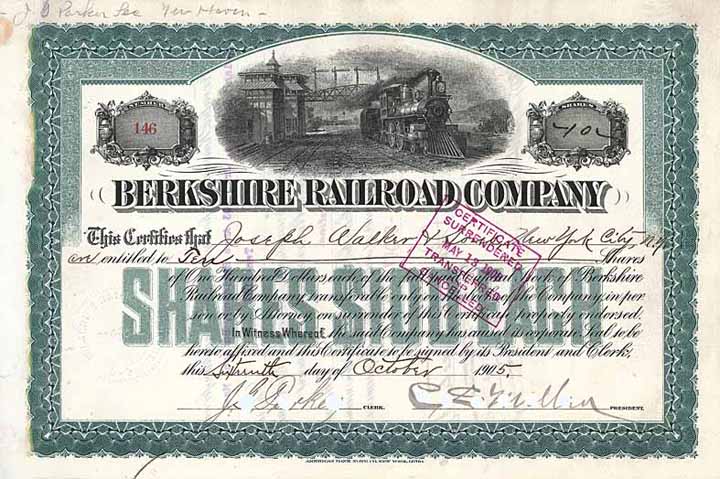 J. G. Parker Sec New Haven -
NUMBER
146
SHARES
-10-
BERKSHIRE RAILROAD COMPANY
This Certifies that Joseph Walker & New York City, N.Y.
are entitled to Ten Shares
of One Hundred Dollars each of the Capital Stock of Berkshire
Railroad Company transferable only on the books of the Company in per
son or by Attorney on surrender of this Certificate properly endorsed.
In Witness Whereof, the said Company has caused its corporate Seal to be
hereto affixed and this Certificate to be signed by its President and Clerk,
this Sixteenth day of October 1905.
J. G. Parker CLERK. PRESIDENT.
SHARES $100 EACH
CERTIFICATE
SURRENDERED
MAY 13
TRANSFERRED
AMERICAN BANK NOTE CO. NEW YORK.